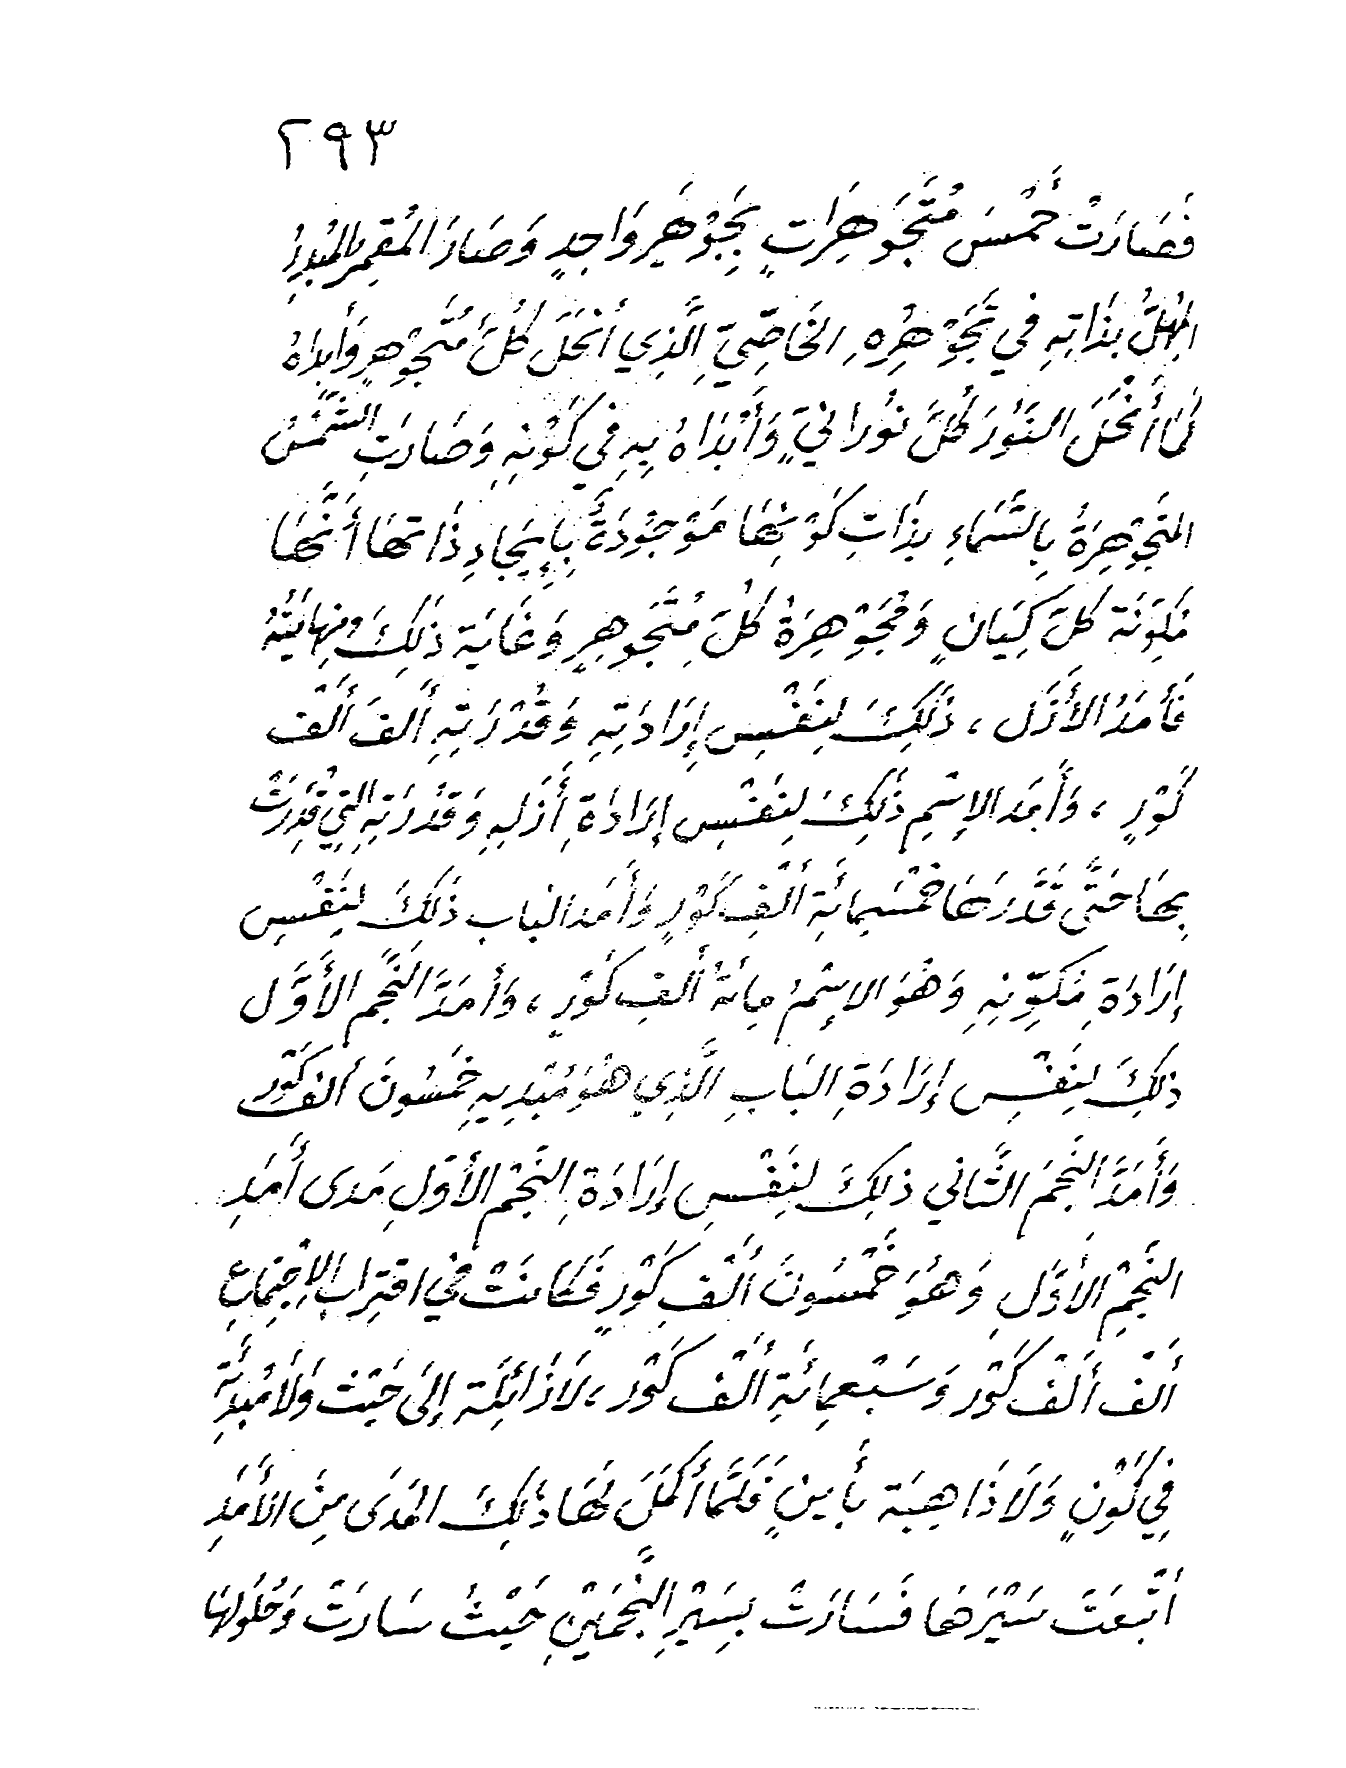 ٢٩٣
فَصَارَتْ خَمْسَ مُتَجَوْهِرَاتٍ بِجَوْهَرٍ وَاحِدٍ وَصَارَ المُقْمِرُ المُبْدِرُ
المُهِلُّ بِذَاتِهِ فِي تَجَوْهُرِهِ الخَاصِّيِّ الَّذِي أَنْحَلَ كُلَّ مُتَجَوْهِرٍ وَأَبْدَاهُ
لَمَّا أَنْحَلَ النُّورَ كُلَّ نُورَانِيٍّ وَأَبْدَاهُ بِهِ فِي كَوْنِهِ وَصَارَتِ الشَّمْسُ
المُتَجَوْهِرَةُ بِالسَّمَاءِ بِذَاتِ كَوْنِهَا مَوْجُودَةً بِإِيجَادِ ذَاتِهَا أَنَّهَا
مُكَوِّنَة كُلَّ كِيَانٍ وَمُجَوْهِرَةُ كُلِّ مُتَجَوْهِرٍ وَغَايَة ذَلِكَ وَنِهَايَتُهُ
فَأَمَدُ الأَزَلِ ، ذَلِكَ لِنَفْسِ إِرَادَتِهِ وَقُدْرَتِهِ أَلفَ أَلْف
كَوْرٍ ، وَأَمَدَ الإِسْمِ ذَلِكَ لِنَفْسِ إِرَادَةِ أَزَلِهِ وَقُدْرَتِهِ الَّتِي قَدَرَتْ
بِهَا حَتَّى قَدَّرَهَا خَمْسَمِائَةِ أَلْفِ كَوْرٍ وَأَمَد البَاب ذَلِكَ لِنَفْسِ
إِرَادَةِ مُكَوِّنِهِ وَهُوَ الإِسْمُ مِائَةُ أَلْفِ كَوْرٍ ، وَأَمَدَّ النَّجْم الأَوَّل
ذَلِكَ لِنَفْسِ إِرَادَةِ البَابِ الَّذِي هُوَ مُبْدِيهِ خَمْسُونَ أَلف كَوْر
وَأَمَدَّ النَّجْمَ الثَّانِي ذَلِكَ لِنَفْسِ إِرَادَةِ النَّجْمِ الأَوَّلِ مَدَى أَمَدِ
النَّجْمِ الأَوَّلِ وَهُوَ خَمْسُونَ أَلْفِ كَوْرٍ فَكَانَتْ فِي اقْتِرَابِ الإِجْتِمَاعِ
أَلْف أَلْف كَوْر وَسَبْعِمِائَةِ أَلْف كَوْر ، لَا زَائِلَة إِلَى حَيْث وَلَا مُبْدِيَة
فِي كَوْنٍ وَلَا ذَاهِبَة بِأَيْنٍ فَلَمَّا أَكْمَلَ لَهَا ذَلِكَ المَدَى مِنَ الأَمَدِ
أَتْبَعَتْ سَيْرَهَا فَسَارَتْ بِسَيْرِ النَّجْمَيْنِ حَيْثُ سَارَتْ وَحُلُولِهَا